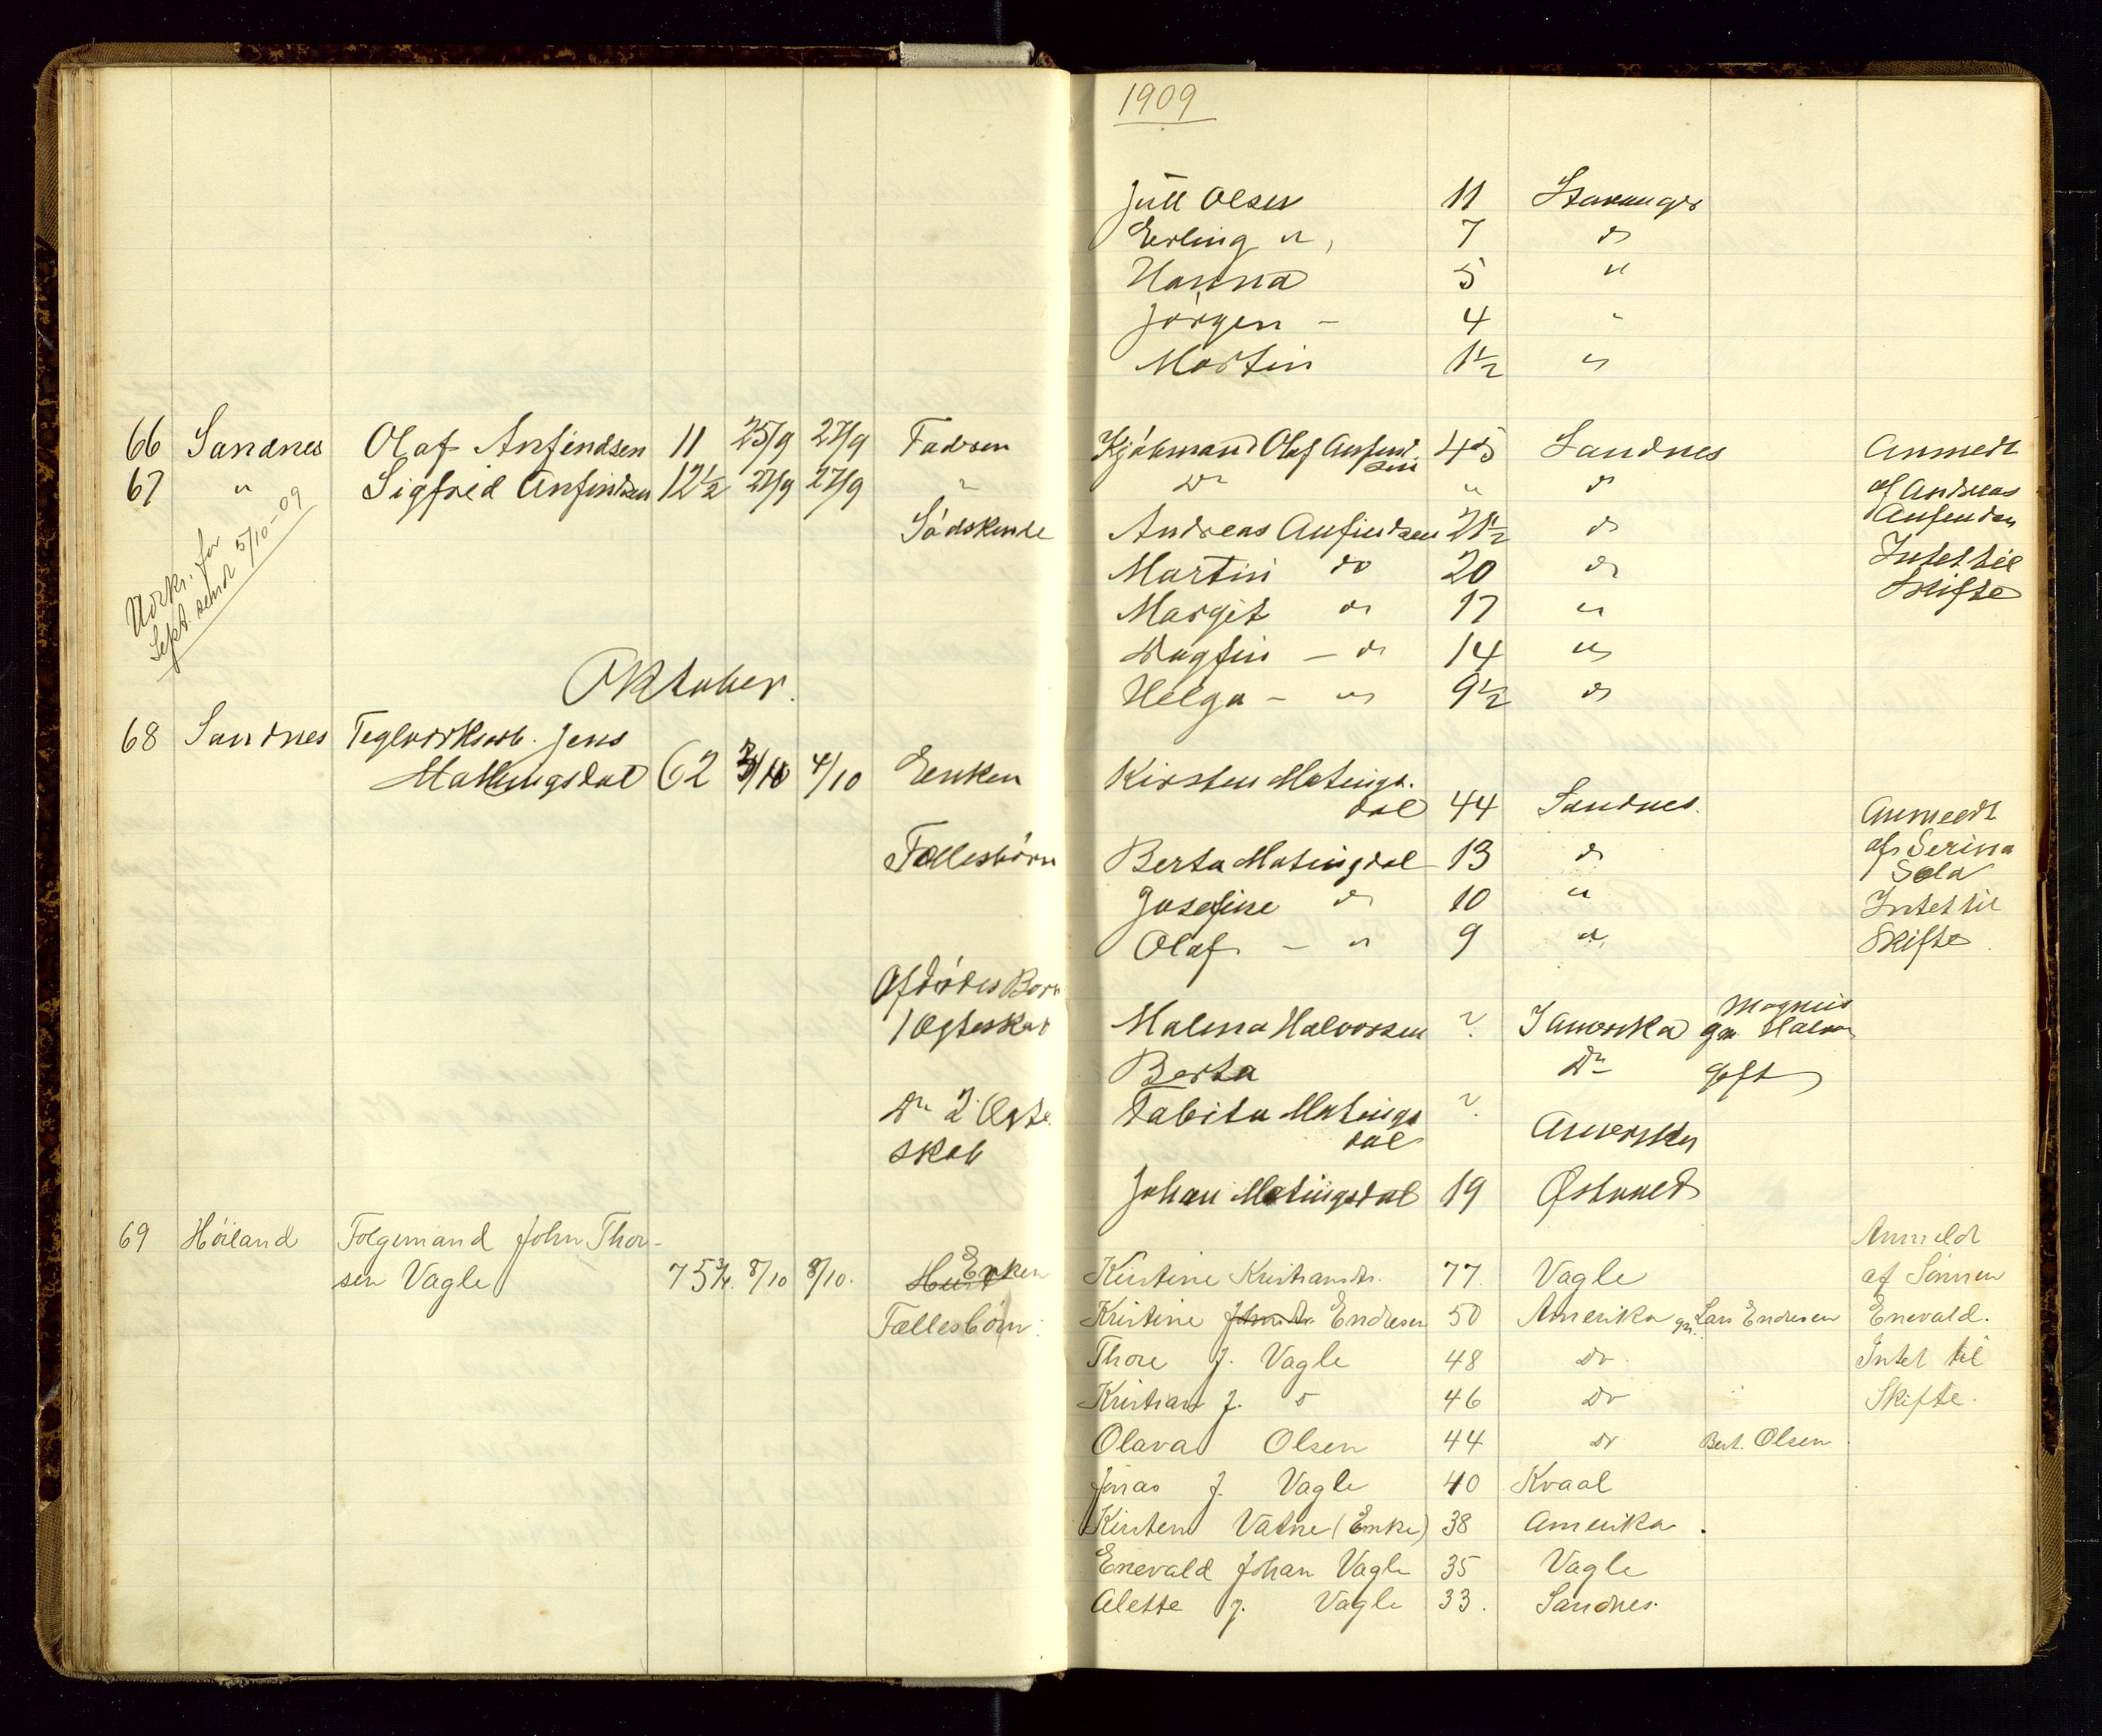 1909
Olsen 11 Stavanger
Erling " 7 do
Hanna 5 "
Jørgen - 4 "
Martin 1½ "
66 Sandnes Olaf Anfindsen 11 25/9 27/9 Fadren Kjøbmand Olaf Anfindsen 45 Sandnes Anmeldt
67 " Sigfred Anfindsen 12½ 27/9 27/9 " Do " do af Andreas
Anfindsen
Sødskende Andreas Anfindsen 21½ do
Intet til
Martin do 20 do
Skifte
Margit do 17 "
Dagfin - do 14 "
Helga - " 9½ do
for
Sept. sendt 5/10-09
Oktober.
68 Sandnes Teglverksarb. Jens
Matingsdal 62 3/10 4/10 Enken Kirsten Matings-
dal 44 Sandnes. Anmeldt
Fællesbörn Berta Matingdal 13 do af Serina
Sola
Josefine do 10 " Intet til
Olaf - " 9 " Skifte
Afdødes Børn
1 Ægteskab Malena Halvorsen ? I Amerika gm. Magnus Halvor
Berta Do gift
Do 2 Ægte
skab Tabita Matings
dal ? Amerika
Johan Matingsdal 19 Østland
69 Höiland Folgemand John Thor- Anmeldt
sen Vagle 75¾. 8/10 8/10. Enken Kirstine Kristiansdtr. 77. Vagle af Sönnen
Fællesbörn. Kristine Endresen 50 Amerika gm. Lars Endresen Enevald.
Thore J. Vagle 48 Do Intet til
Kristian J. " 46 Do Skifte.
Olava Olsen 44 Do Bert. Olsen
Jonas J. Vagle 40 Kvaal
Kirsten Vatne (Enke) 38 Amerika.
Enevald Johan Vagle 35 Vagle
Alette J. Vagle 33. Sandnes.